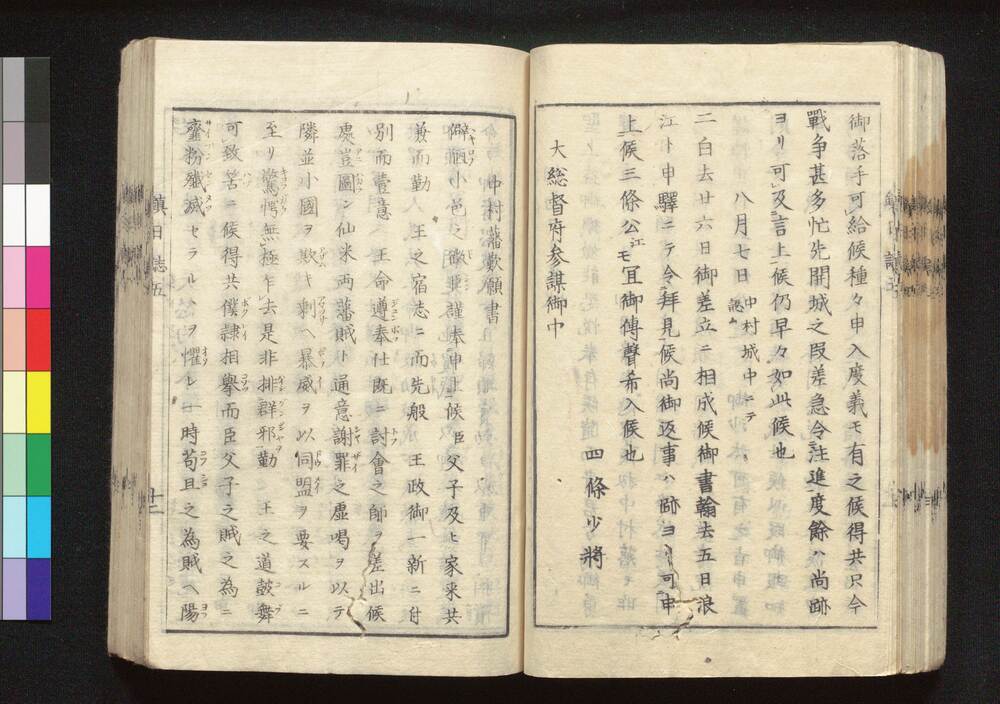 御落手可給候種々申入度義モ有之候得共只今
戰争甚多忙先開城之段差急令注進度餘ハ尚跡
ヨリ可及言上候仍早々如此候也
八月七日中村城中ニテ認ム
四條少將
大総督府参謀御中
二白去廿六日御差立ニ相成候御書翰去五日浪
江ト申驛ニテ令拜見候尚御返事ハ跡ヨリ可申
上候三條公江モ冝御傳聲希入候也
中村藩歎願書
僻陋小邑之微臣謹奉申上候臣父子及ヒ家来共
嫌而勤 王之宿志ニ而先般 王政御一新ニ付
別而壹意 王命遵奉仕既ニ討會之師ヲ差出候
處豈圖ン仙米両藩賊ト通意謝罪之虚喝ヲ以テ
隣並小國ヲ欺キ剰ヘ暴威ヲ以同盟ヲ要スルニ
至リ驚愕無極乍去是非排群邪勤 王之道鼓舞
可致苦ニ候得共僕隷相擧而臣父子之賊之為ニ
齏粉殲滅セラルヽヲ懼レ一時苟且之為賊ヘ陽
鎮日誌五
十二